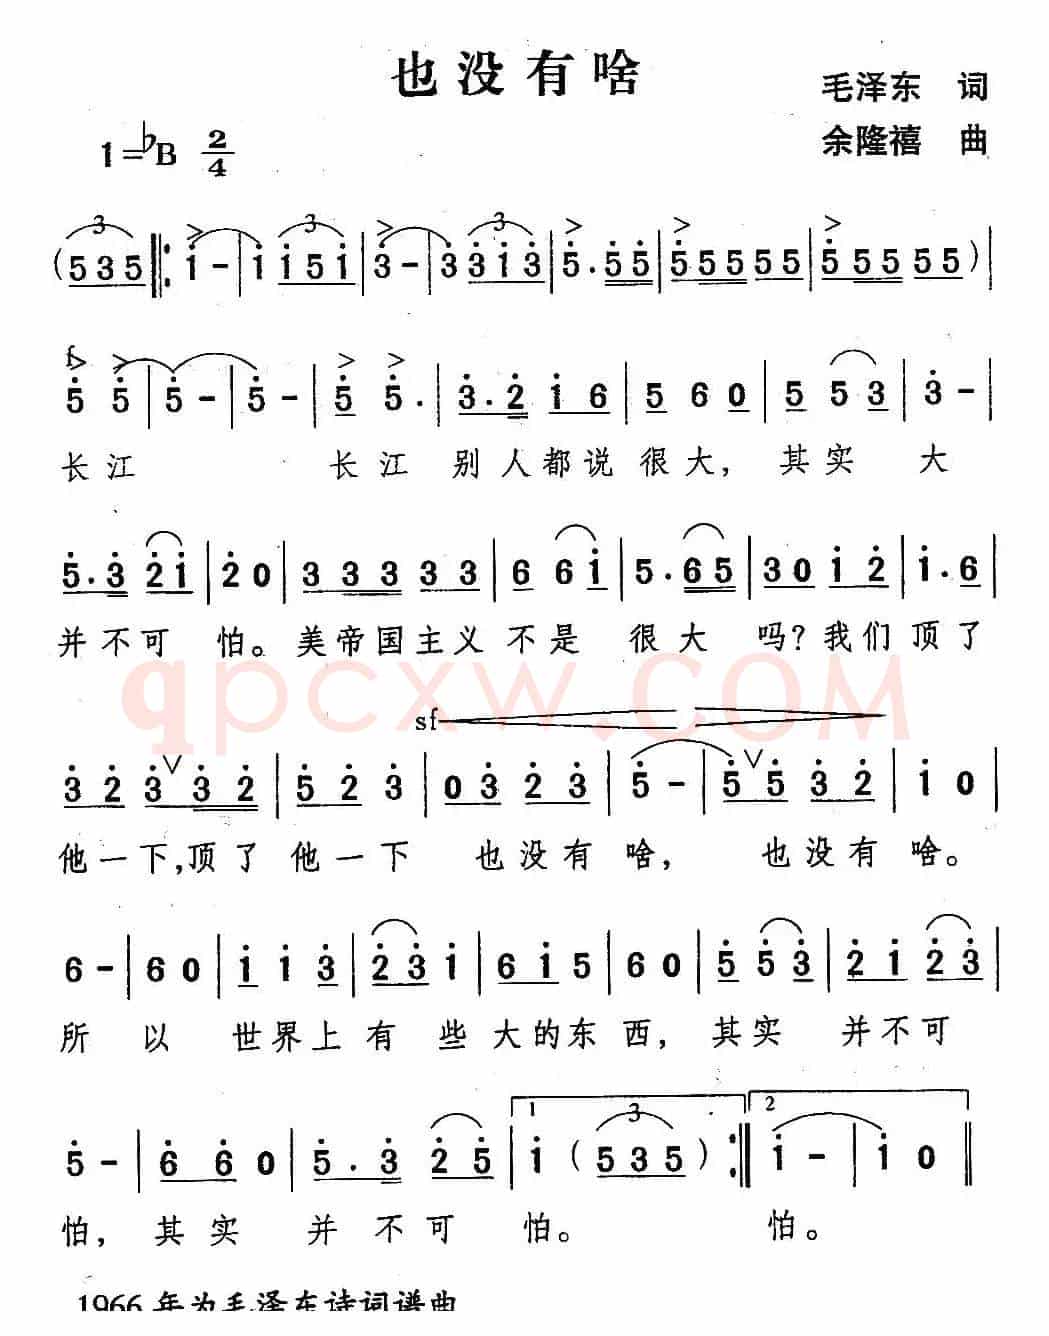 也没有啥
毛泽东 词
1=♭B 2/4
余隆禧 曲
3 3 3
(5 3 5 ‖: i - | i i 5 i | 3 - | 3 3 i 3 | 5 . 5 5 | 5 5 5 5 5 | 5 5 5 5 5 ) |
f
5 5 | 5 - | 5 - | 5 5 . | 3 . 2 i 6 | 5 6 0 | 5 5 3 | 3 - |
长江 长江 别人都说很大，其实 大
5 . 3 2 i | 2 0 | 3 3 3 3 3 | 6 6 i | 5 . 6 5 | 3 0 i 2 | i . 6 |
并不可 怕。美帝国主义 不是 很大 吗？我们顶了
qpcxw.COM
sf
3 2 3 V 3 2 | 5 2 3 | 0 3 2 3 | 5 - | 5 V 5 3 2 | i 0 |
他一下，顶了 他一下 也没有 啥， 也没有 啥。
6 - | 6 0 | i i 3 | 2 3 i | 6 i 5 | 6 0 | 5 5 3 | 2 i 2 3 |
所 以 世界上有 些 大的东 西，其实 并不可
1 3 2
5 - | 6 6 0 | 5 . 3 2 5 | i ( 5 3 5 ) :‖ i - | i 0 ‖
怕，其实 并不可 怕。 怕。
1966年为毛泽东诗词谱曲